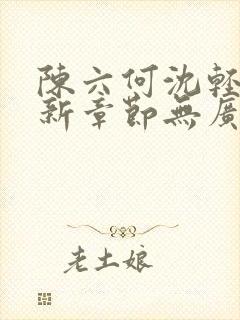 陳六何沈輕
新章節無廣
老土娘